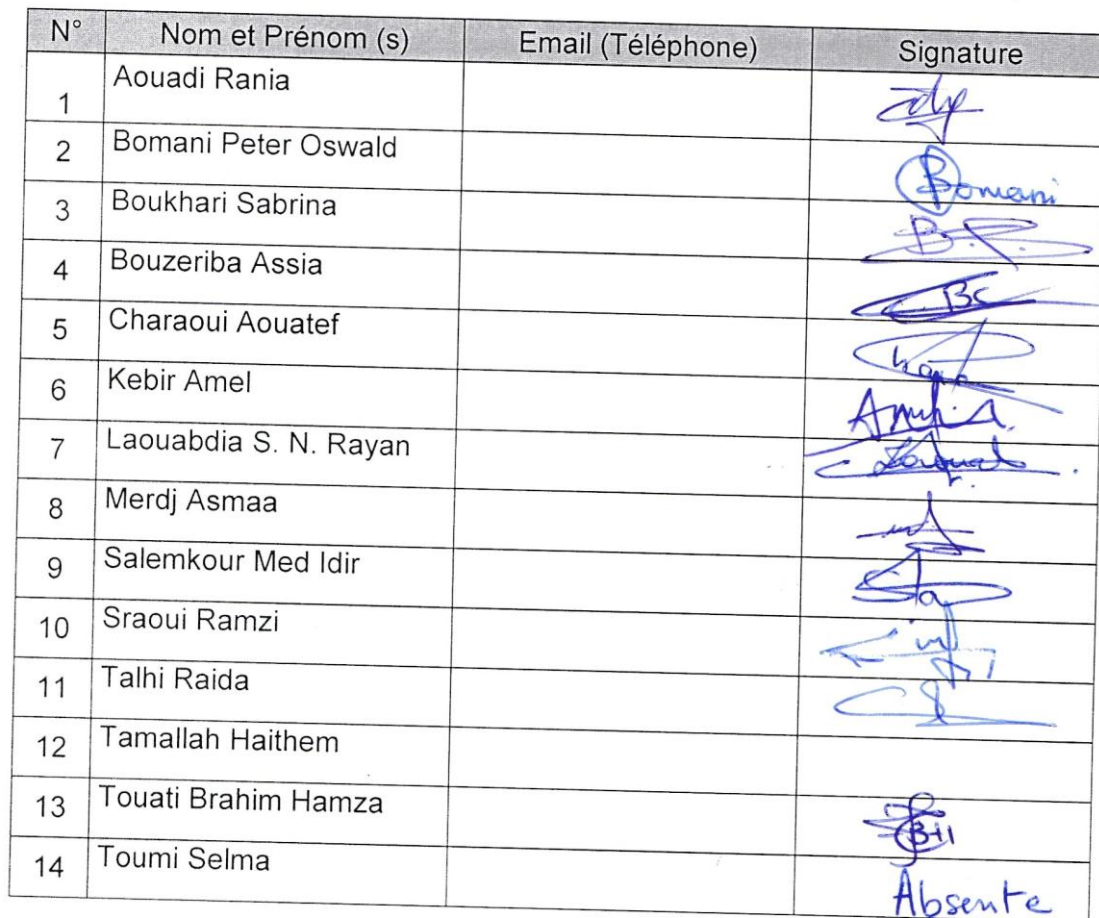 N° Nom et Prénom (s) Email (Téléphone) Signature
1 Aouadi Rania
2 Bomani Peter Oswald Bomani
3 Boukhari Sabrina B.S.
4 Bouzeriba Assia
5 Charaoui Aouatef
6 Kebir Amel
7 Laouabdia S. N. Rayan
8 Merdj Asmaa
9 Salemkour Med Idir
10 Sraoui Ramzi
11 Talhi Raida
12 Tamallah Haithem
13 Touati Brahim Hamza
14 Toumi Selma Absente